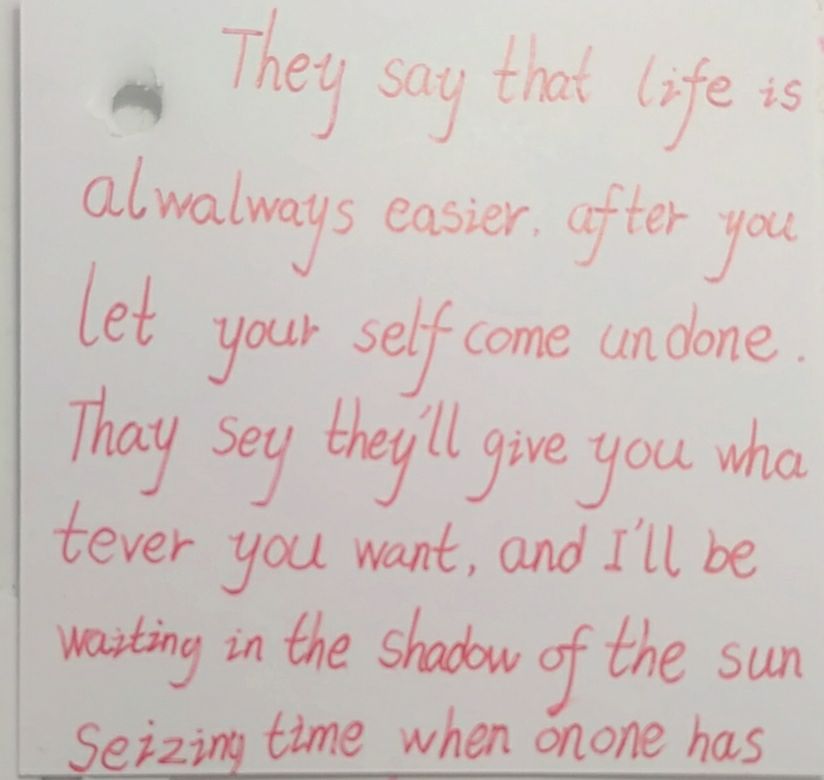 They say that life is
alwalways easier. after you
let your self come undone.
Thay sey they'll give you wha
tever you want, and I'll be
waiting in the shadow of the sun
Seizing time when onone has